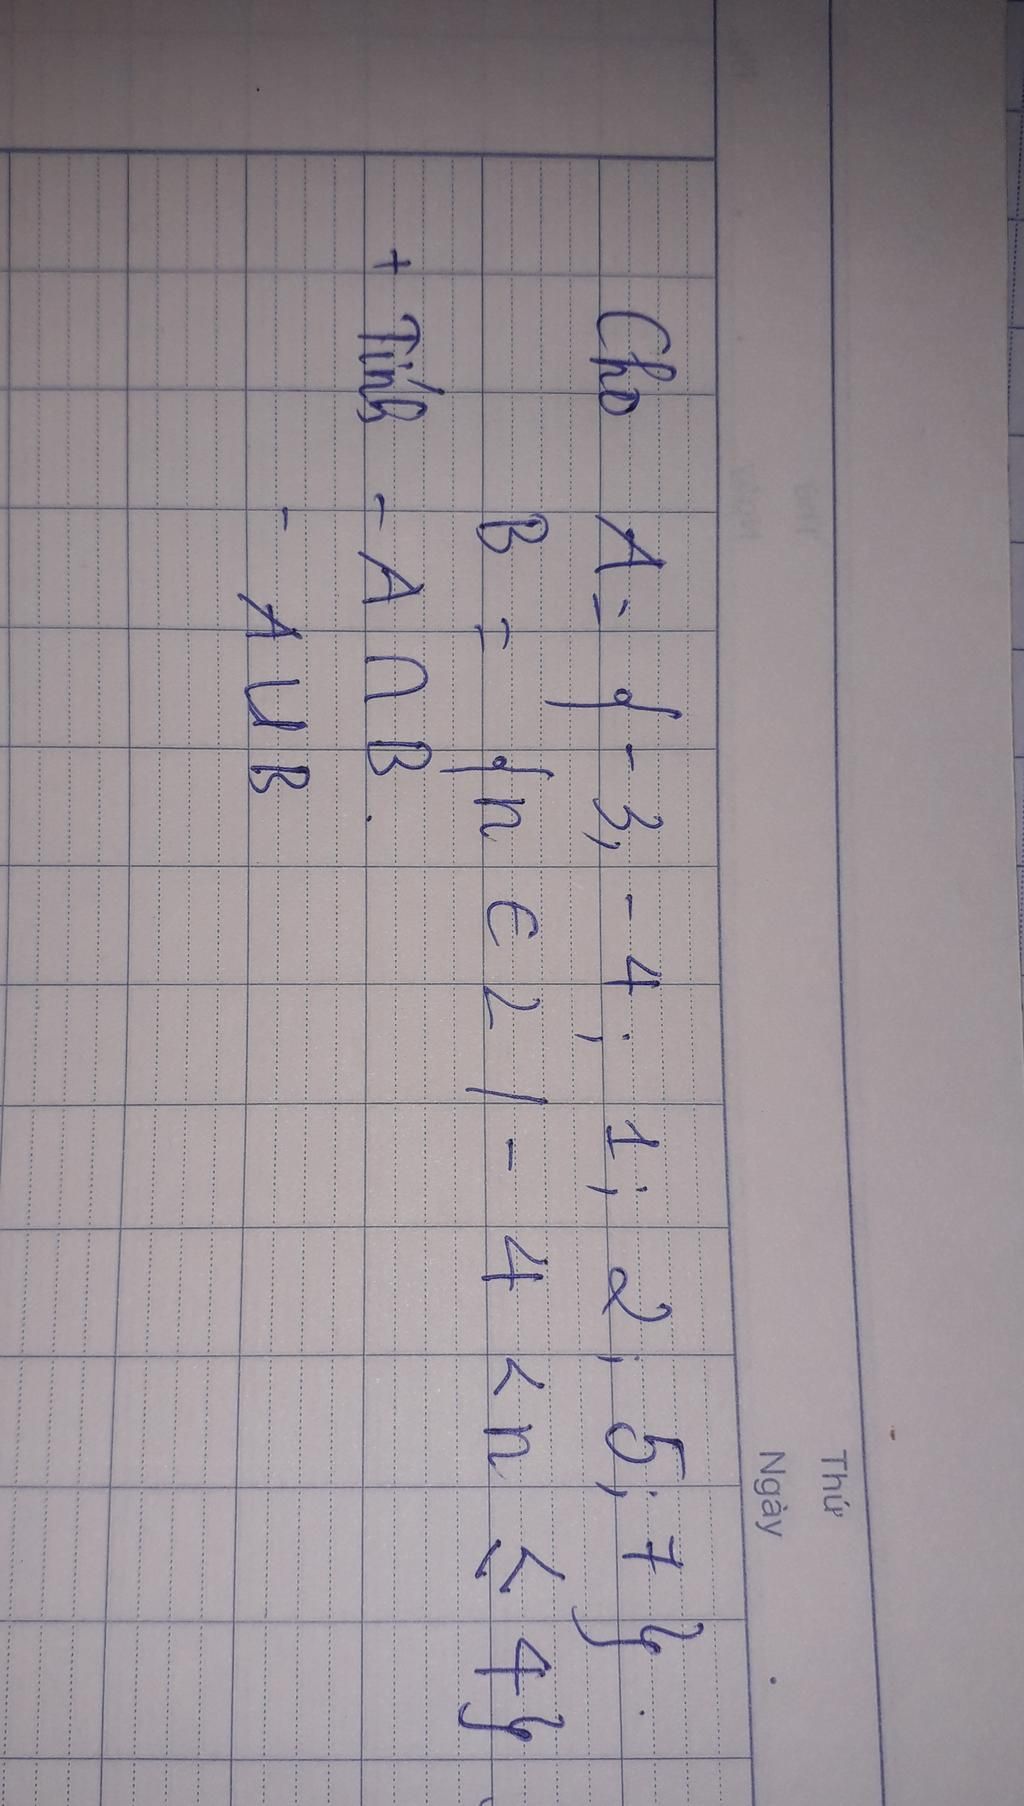 Thứ
Ngày
Cho A = { -3, -4; 1; 2; 5; 7 }.
B = { n ∈ Z / -4 < n ≤ 4 }
+ Tính - A ∩ B.
- A ∪ B